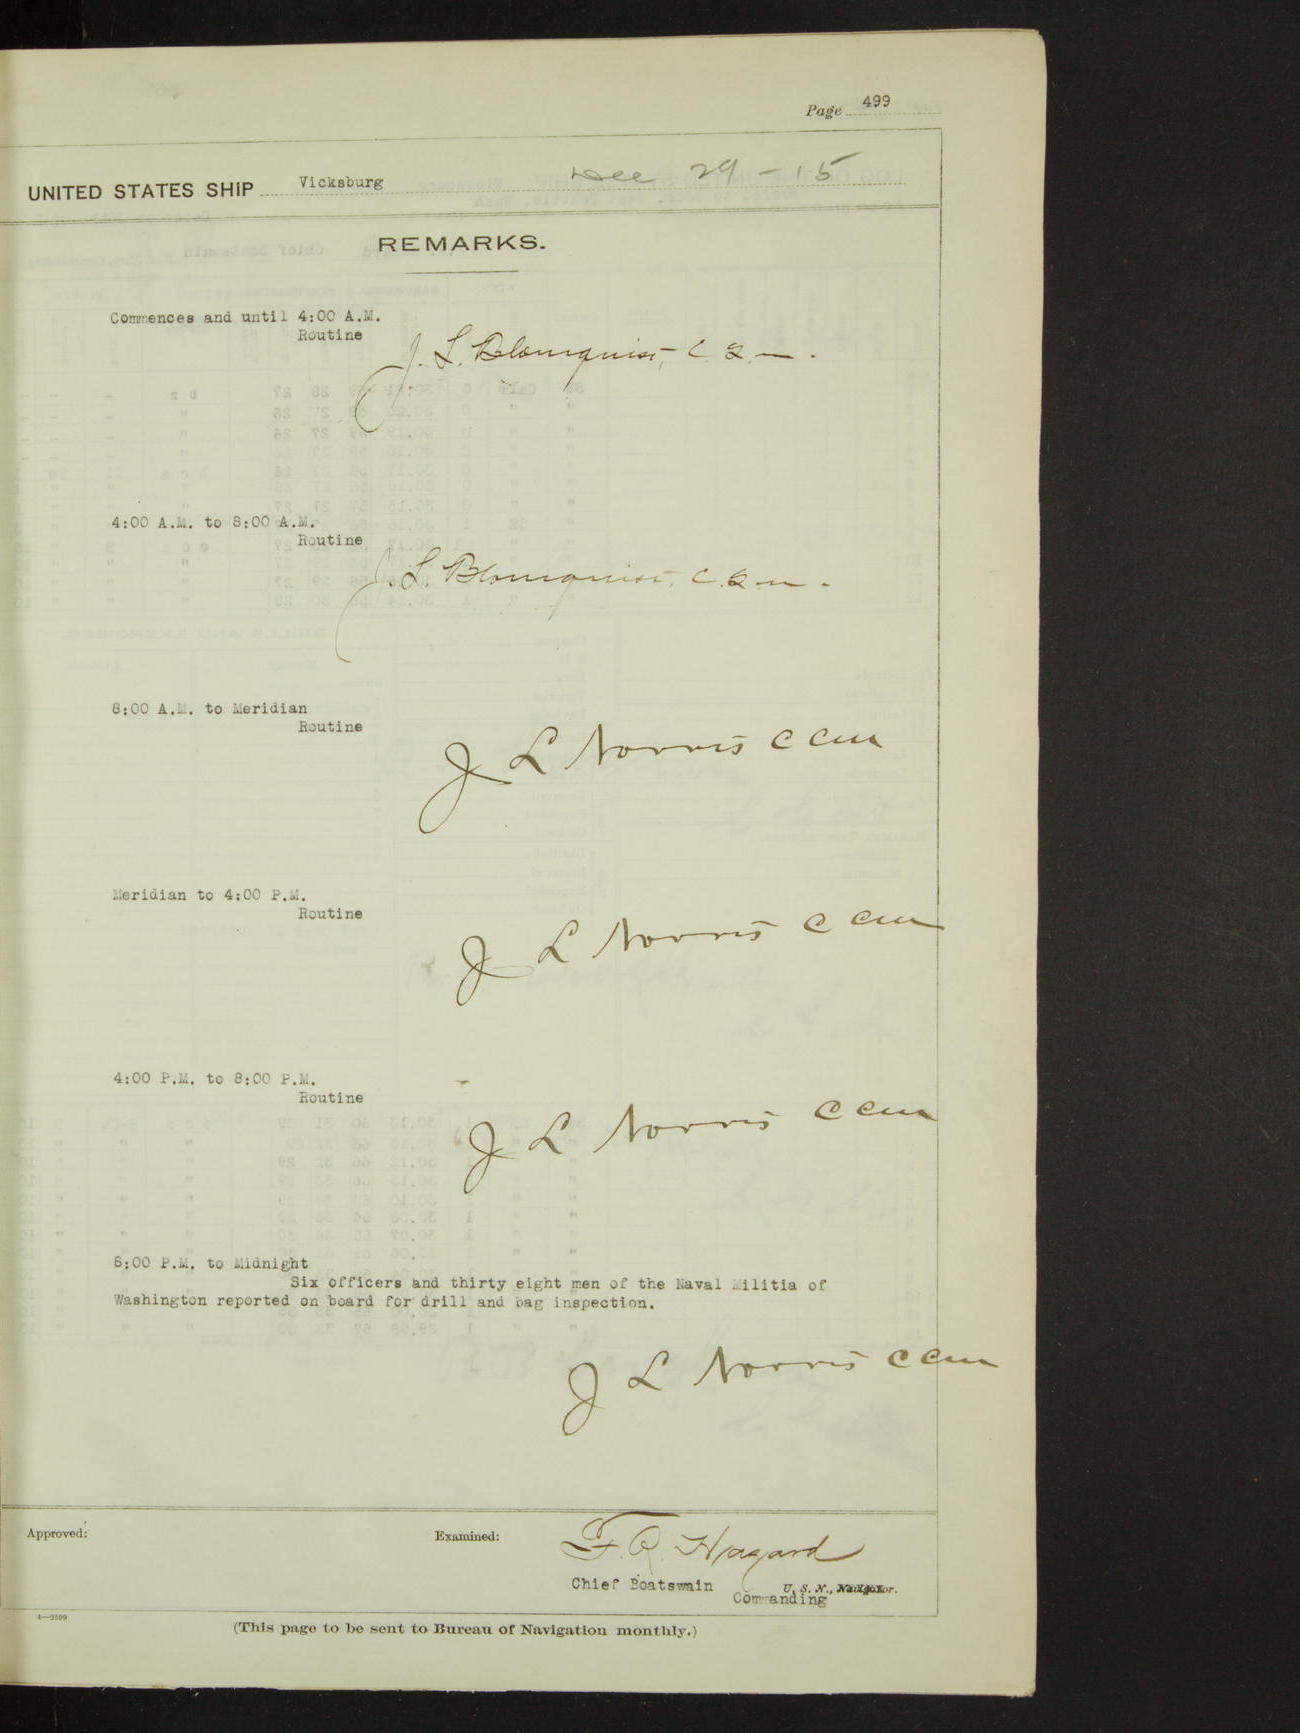 Page 499
UNITED STATES SHIP Vicksburg Dec 29 - 15
REMARKS.
Commences and until 4:00 A.M.
Routine
J. L. Blomquist, C.G.M.
4:00 A.M. to 8:00 A.M.
Routine
J. L. Blomquist, C.G.M.
8:00 A.M. to Meridian
Routine
J L Norris C CM
Meridian to 4:00 P.M.
Routine
J L Norris C CM
4:00 P.M. to 8:00 P.M.
Routine
J L Norris C CM
8:00 P.M. to Midnight
Six officers and thirty eight men of the Naval Militia of
Washington reported on board for drill and bag inspection.
J L Norris C CM
Approved: Examined: F. R. Hazard
Chief Boatswain U. S. N., Navigator.
Commanding
4—2599
(This page to be sent to Bureau of Navigation monthly.)